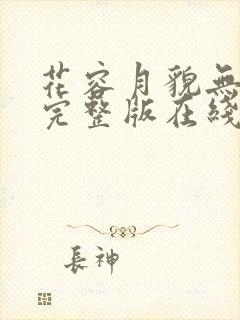 花容月貌無
完整版在綫
長神